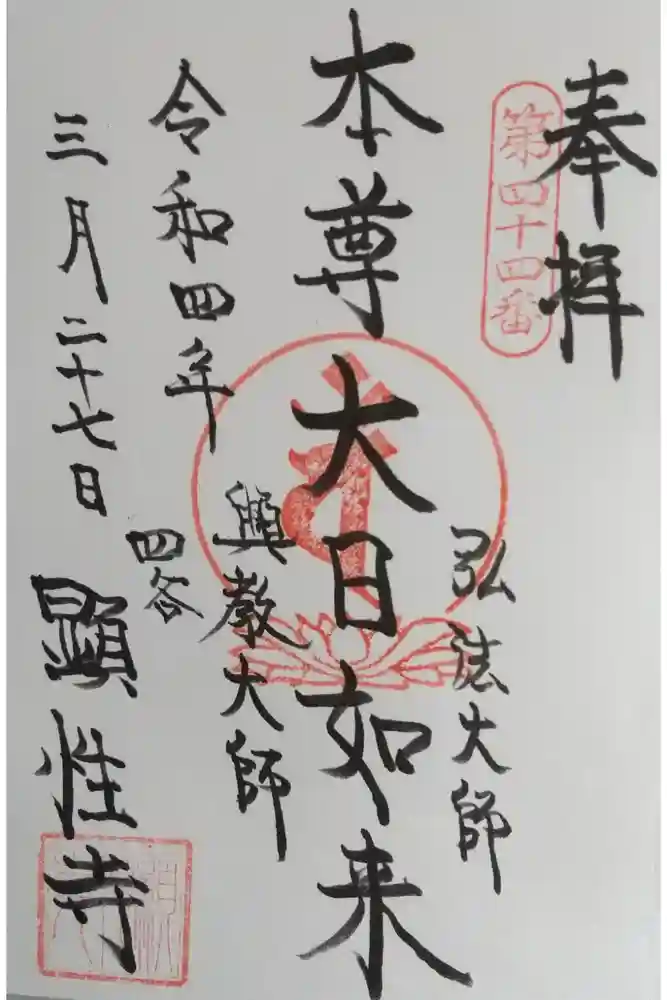 奉拝
第四十四番
弘法大師
本尊大日如来
興教大師
令和四年
三月二十七日
四谷
顕性寺